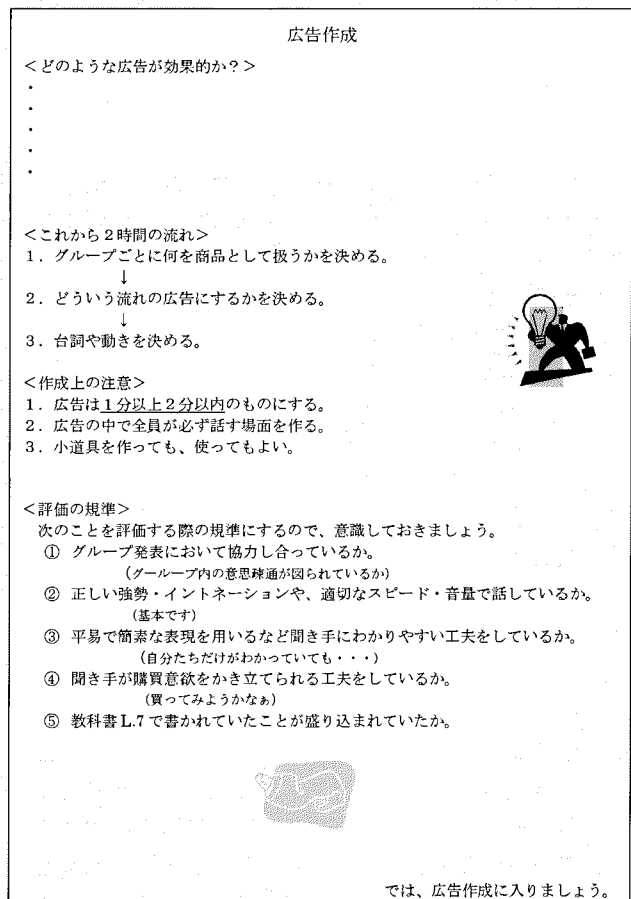 広告作成
＜どのような広告が効果的か？＞
・
・
・
・
・
＜これから２時間の流れ＞
１．グループごとに何を商品として扱うかを決める。
↓
２．どういう流れの広告にするかを決める。
↓
３．台詞や動きを決める。
＜作成上の注意＞
１．広告は１分以上２分以内のものにする。
２．広告の中で全員が必ず話す場面を作る。
３．小道具を作っても、使ってもよい。
＜評価の規準＞
次のことを評価する際の規準にするので、意識しておきましょう。
① グループ発表において協力し合っているか。
（グーループ内の意思疎通が図られているか）
② 正しい強勢・イントネーションや、適切なスピード・音量で話しているか。
（基本です）
③ 平易で簡素な表現を用いるなど聞き手にわかりやすい工夫をしているか。
（自分たちだけがわかっていても・・・）
④ 聞き手が購買意欲をかき立てられる工夫をしているか。
（買ってみようかなぁ）
⑤ 教科書 L.7 で書かれていたことが盛り込まれていたか。
では、広告作成に入りましょう。